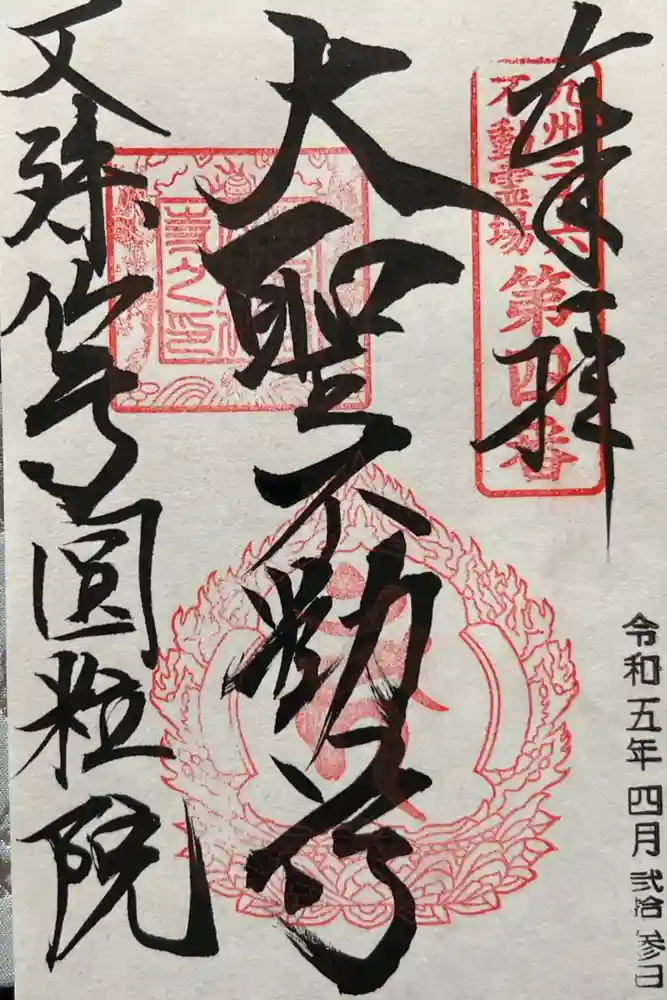 奉拝
九州三十六
不動霊場
第四番
大聖不動尊
文殊仙寺圓粒院
令和五年四月弐拾参日